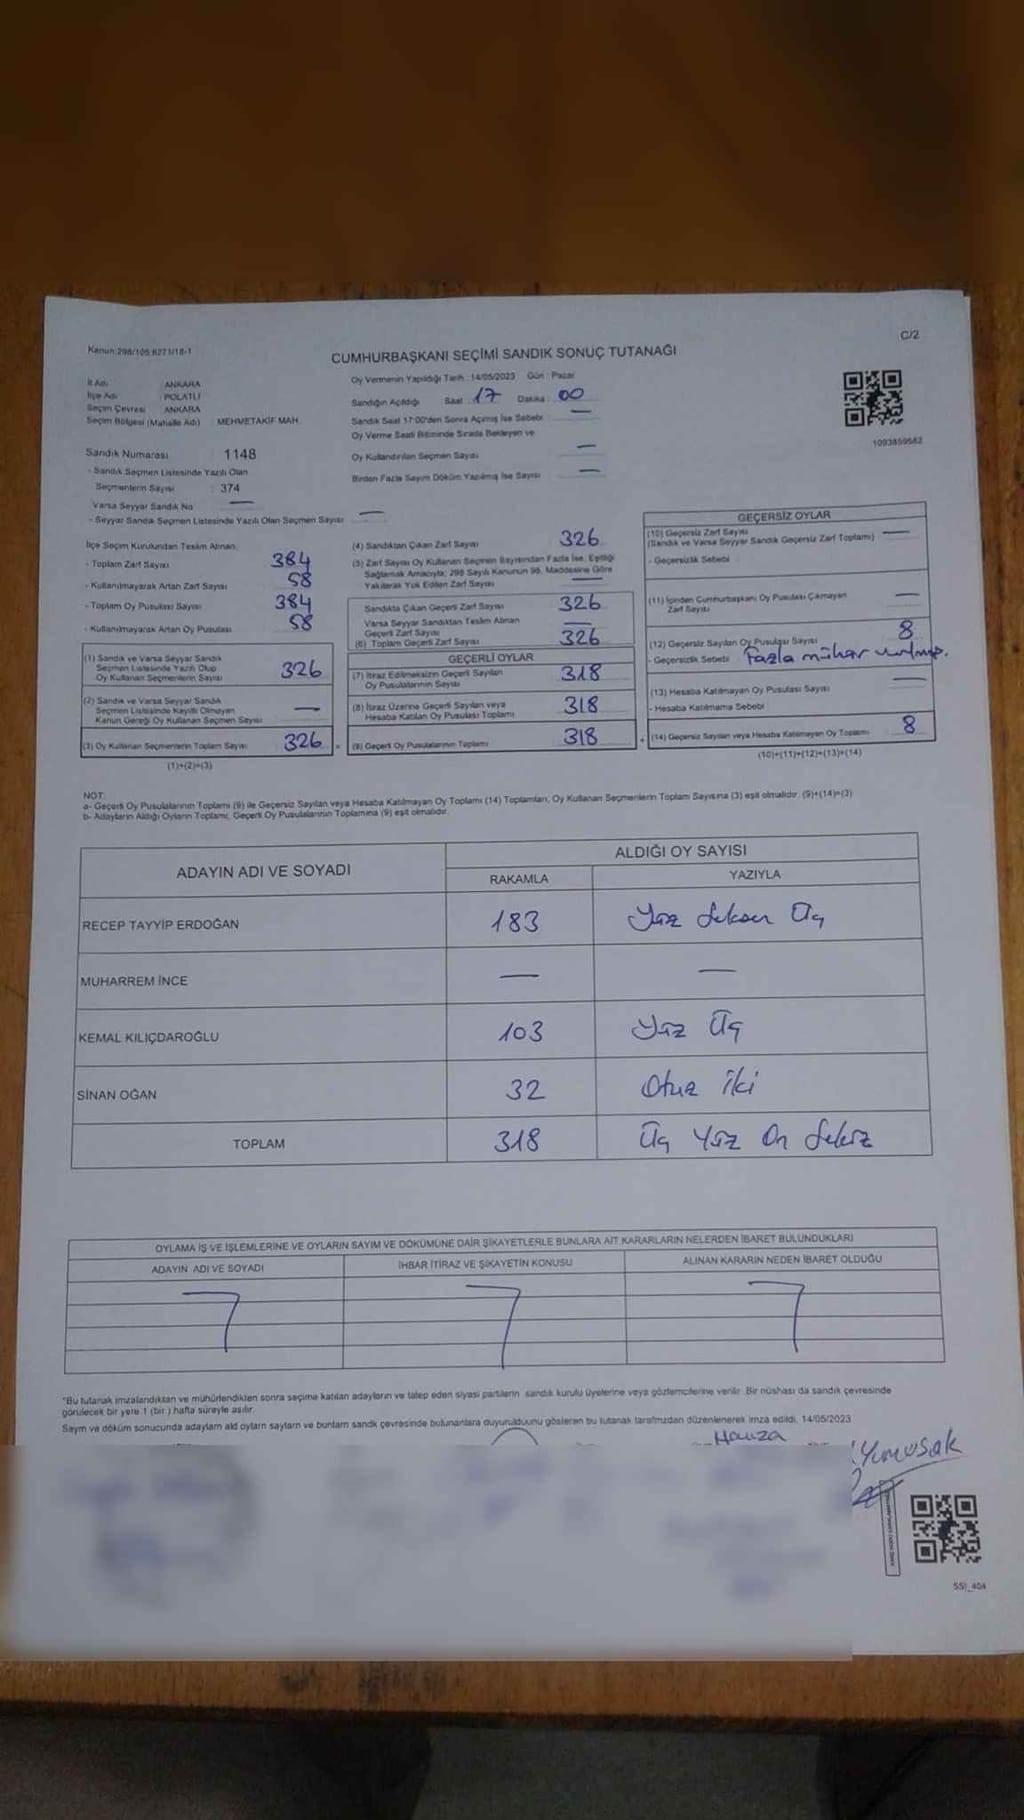 C/2
Kanun:298/105 6271/18-1
CUMHURBAŞKANI SEÇİMİ SANDIK SONUÇ TUTANAĞI
İl Adı ANKARA
İlçe Adı POLATLI
Seçim Çevresi ANKARA
Seçim Bölgesi (Mahalle Adı) : MEHMETAKİF MAH.
Sandık Numarası 1148
- Sandık Seçmen Listesinde Yazılı Olan
Seçmenlerin Sayısı : 374
Varsa Seyyar Sandık No —
- Seyyar Sandık Seçmen Listesinde Yazılı Olan Seçmen Sayısı —
Oy Vermenin Yapıldığı Tarih : 14/05/2023 Gün : Pazar
Sandığın Açıldığı Saat : 17 Dakika : 00
Sandık Saat 17:00'den Sonra Açılmış İse Sebebi —
Oy Verme Saati Bitiminde Sırada Bekleyen ve
Oy Kullandırılan Seçmen Sayısı —
Birden Fazla Sayım Döküm Yapılmış İse Sayısı —
1093859582
İlçe Seçim Kurulundan Teslim Alınan
- Toplam Zarf Sayısı 384
- Kullanılmayarak Artan Zarf Sayısı 58
- Toplam Oy Pusulası Sayısı 384
- Kullanılmayarak Artan Oy Pusulası 58
(1) Sandık ve Varsa Seyyar Sandık
Seçmen Listesinde Yazılı Olup
Oy Kullanan Seçmenlerin Sayısı 326
(2) Sandık ve Varsa Seyyar Sandık
Seçmen Listesinde Kayıtlı Olmayan
Kanun Gereği Oy Kullanan Seçmen Sayısı —
(3) Oy Kullanan Seçmenlerin Toplam Sayısı 326 =
(1)+(2)=(3)
(4) Sandıktan Çıkan Zarf Sayısı 326
(5) Zarf Sayısı Oy Kullanan Seçmen Sayısından Fazla İse, Eşitliği
Sağlamak Amacıyla; 298 Sayılı Kanunun 98. Maddesine Göre
Yakılarak Yok Edilen Zarf Sayısı —
Sandıkta Çıkan Geçerli Zarf Sayısı 326
Varsa Seyyar Sandıktan Teslim Alınan
Geçerli Zarf Sayısı —
(6) Toplam Geçerli Zarf Sayısı 326
GEÇERLİ OYLAR
(7) İtiraz Edilmeksizin Geçerli Sayılan
Oy Pusulalarının Sayısı 318
(8) İtiraz Üzerine Geçerli Sayılan veya
Hesaba Katılan Oy Pusulası Toplamı 318
(9) Geçerli Oy Pusulalarının Toplamı 318 +
GEÇERSİZ OYLAR
(10) Geçersiz Zarf Sayısı
(Sandık ve Varsa Seyyar Sandık Geçersiz Zarf Toplamı) —
- Geçersizlik Sebebi
(11) İçinden Cumhurbaşkanı Oy Pusulası Çıkmayan
Zarf Sayısı —
(12) Geçersiz Sayılan Oy Pusulası Sayısı 8
- Geçersizlik Sebebi Fazla mühür vurulmuş.
(13) Hesaba Katılmayan Oy Pusulası Sayısı —
- Hesaba Katılmama Sebebi
(14) Geçersiz Sayılan veya Hesaba Katılmayan Oy Toplamı 8
(10)+(11)+(12)+(13)=(14)
NOT:
a- Geçerli Oy Pusulalarının Toplamı (9) ile Geçersiz Sayılan veya Hesaba Katılmayan Oy Toplamı (14) Toplamları, Oy Kullanan Seçmenlerin Toplam Sayısına (3) eşit olmalıdır. (9)+(14)=(3)
b- Adayların Aldığı Oyların Toplamı, Geçerli Oy Pusulalarının Toplamına (9) eşit olmalıdır.
ADAYIN ADI VE SOYADI ALDIĞI OY SAYISI
RAKAMLA YAZIYLA
RECEP TAYYİP ERDOĞAN 183 Yüz Seksen Üç
MUHARREM İNCE — —
KEMAL KILIÇDAROĞLU 103 Yüz Üç
SİNAN OĞAN 32 Otuz iki
TOPLAM 318 Üç Yüz On Sekiz
OYLAMA İŞ VE İŞLEMLERİNE VE OYLARIN SAYIM VE DÖKÜMÜNE DAİR ŞİKAYETLERLE BUNLARA AİT KARARLARIN NELERDEN İBARET BULUNDUKLARI
ADAYIN ADI VE SOYADI İHBAR İTİRAZ VE ŞİKAYETİN KONUSU ALINAN KARARIN NEDEN İBARET OLDUĞU
*Bu tutanak imzalandıktan ve mühürlendikten sonra seçime katılan adayların ve talep eden siyasi partilerin sandık kurulu üyelerine veya gözlemcilerine verilir. Bir nüshası da sandık çevresinde
görülecek bir yere 1 (bir ) hafta süreyle asılır.
Sayım ve döküm sonucunda adayların aldı oyların sayıların ve bunların sandık çevresinde bulunanlara duyurulduunu gösteren bu tutanak tarafımızdan düzenlenerek imza edildi. 14/05/2023
Hamza
Yumuşak
SSI_404